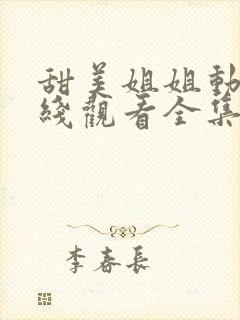 甜美姐姐動
綫觀看全集
李春長